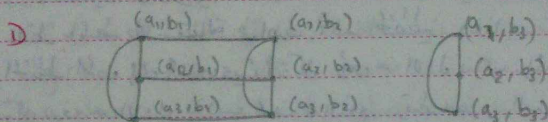 D (a₁,b₁) (a₁,b₂) (a₁,b₃)
(a₂,b₁) (a₂,b₂) (a₂,b₃)
(a₃,b₁) (a₃,b₂) (a₃,b₃)